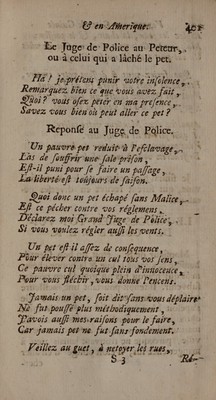 & en Amerique. 401
Le Juge de Police au Peteur,
ou à celui qui a lâché le pet.
Ha ! je prétens punir votre insolence,
Remarquez bien ce que vous avez fait,
Quoi ? vous osez peter en ma presence,
Savez vous bien où peut aller ce pet ?
Reponse au Juge de Police.
Un pauvre pet reduit à l'esclavage,
Las de souffrir une sale prison,
Est-il puni pour se faire un passage,
La liberté est toûjours de saison.
Quoi donc un pet échapé sans Malice,
Est ce pécher contre vos réglemens,
Déclarez moi Grand Juge de Police,
Si vous voulez régler aussi les vents.
Un pet est il assez de consequence,
Pour élever contre un cul tous vos sens,
Ce pauvre cul quoique plein d'innocence,
Pour vous fléchir, vous donne l'encens.
Jamais un pet, soit dit sans vous déplaire
Ne fut poussé plus méthodiquement,
J'avois aussi mes raisons pour le faire,
Car jamais pet ne fut sans fondement.
Veillez au guet, à netoyer les rues,
S 3 Ré-